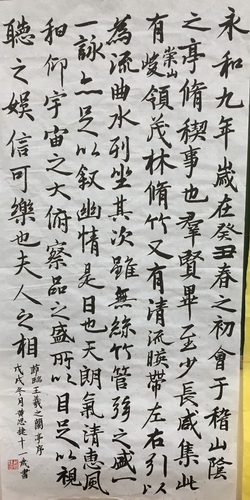 永和九年歲在癸丑春之初會于稽山陰
之亭脩稧事也羣賢畢至少長咸集此
有崇山峻領茂林脩竹又有清流暎帶左右引以
為流曲水列坐其次雖無絲竹管弦之盛一
一詠亦足以叙幽情是日也天朗氣清惠風
和仰宇宙之大俯察品之盛所以目足以視
聽之娛信可樂也夫人之相
節臨王羲之蘭亭序
戊戌冬月黄思捷十一歲書